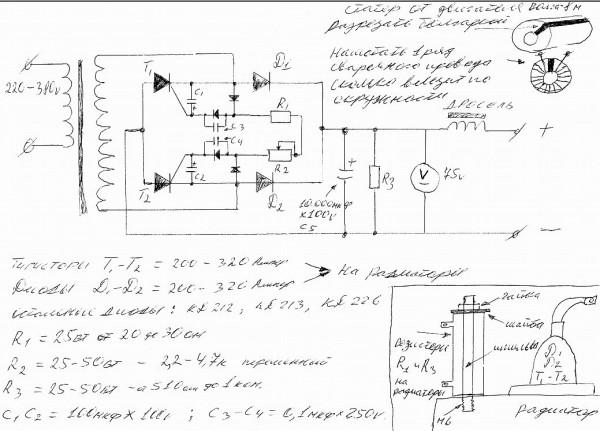 Статор от двигателя
разрезать болгаркой
Намотать 1 ряд
сварочного провода
сколько влезит по
окружности
Дросель
220-380v
T1
T2
C1
C2
C3
C4
D1
D2
R1
R2
R3
V
75v
+
+
−
10.000мкф
x100v
C5
Тиристоры T1-T2 = 200-320 Ампер
Диоды D1-D2 = 200-320 Ампер
На радиаторы
остальные диоды: КД212, КД213, КД226
R1 = 25вт от 20 до 30 ом
R2 = 25-50вт - 2,2-4,7к переменный
R3 = 25-50вт - 510м до 1 ком.
C1 C2 = 100мкф x 100v; C3-C4 = 0,1мкф x 250v.
гайка
шайба
шпилька
резисторы
R1 и R3
на
радиаторы
М6
D1
D2
T1-T2
радиатор